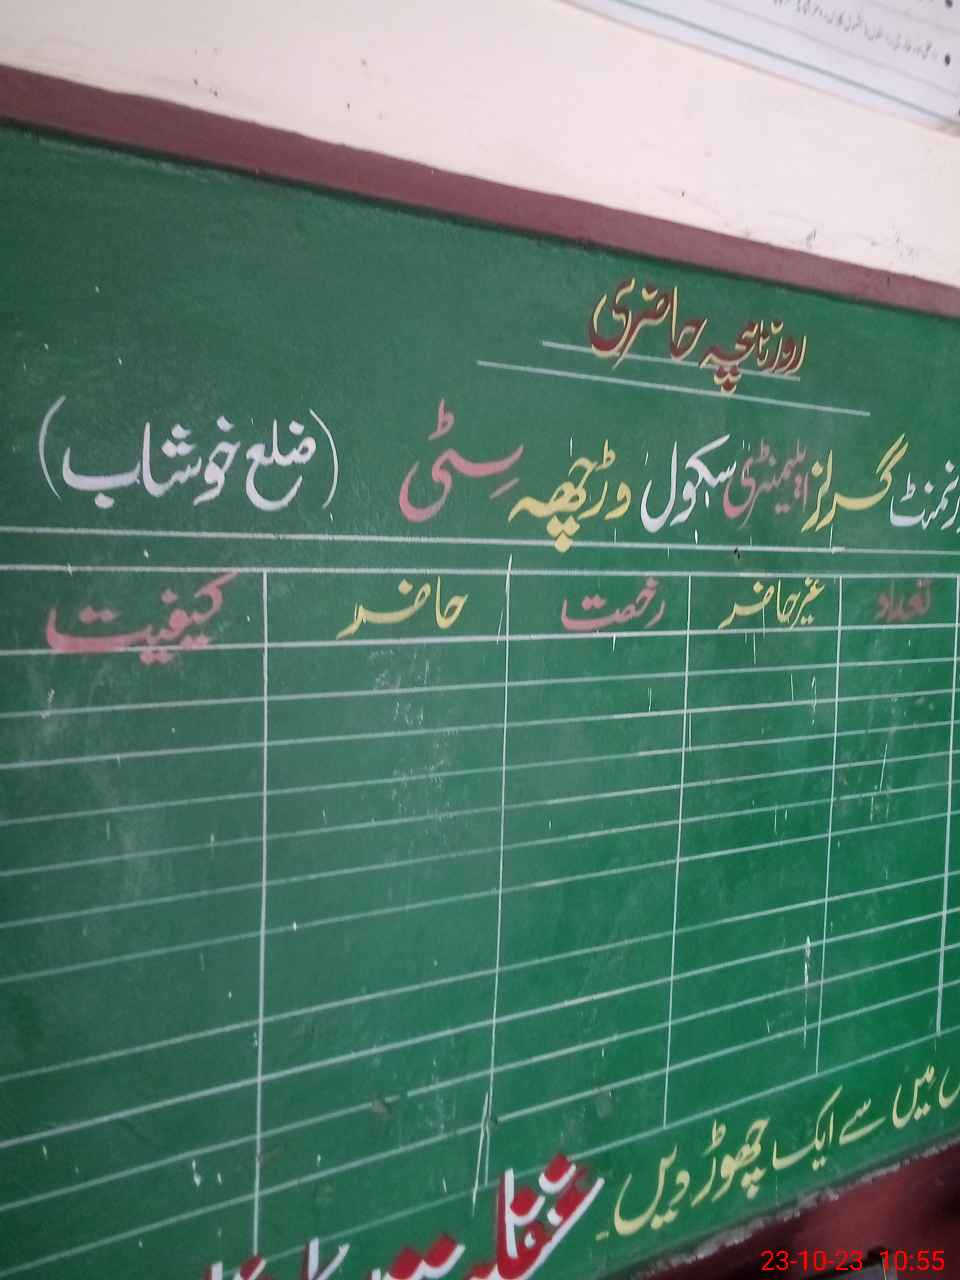 روزنامچہ حاضری
گرلز ایلیمنٹری سکول وڑچھہ سِٹی (ضلع خوشاب)
تعداد غیر حاضر رخصت حاضر کیفیت
میں سے ایک چھوڑ دیں
23-10-23 10:55